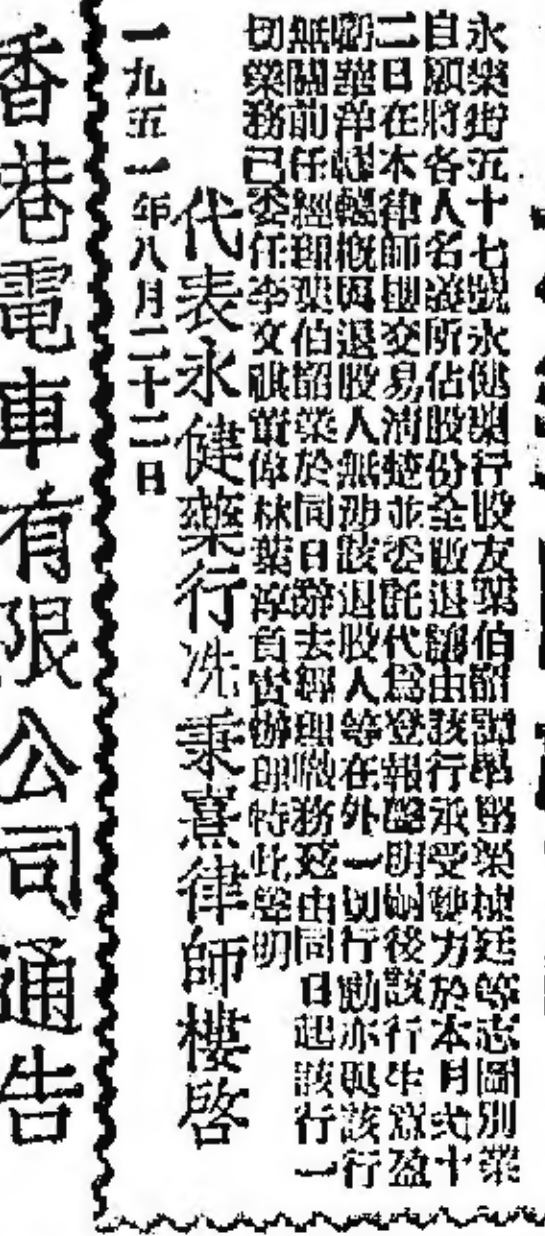 永樂街五十七號永健藥行股友葉伯韶 學 葉 廷等志圖別業
自願將各人名義所佔股份全數退 由該行承受 方於本月式十
二日在本律師樓交易清楚並委託代為登報聲明嗣後該行生意盈
虧 轇轕概與退股人無涉該退股人等在外一切行動亦與該行
無關前任經理葉伯韶業於同日辭去經理職務 由同日起該行一
切業務已委任李文 林葉 負責辦理特此聲明
代表永健藥行冼秉熹律師樓啓
一九五一年八月二十二日
香港電車有限公司通告